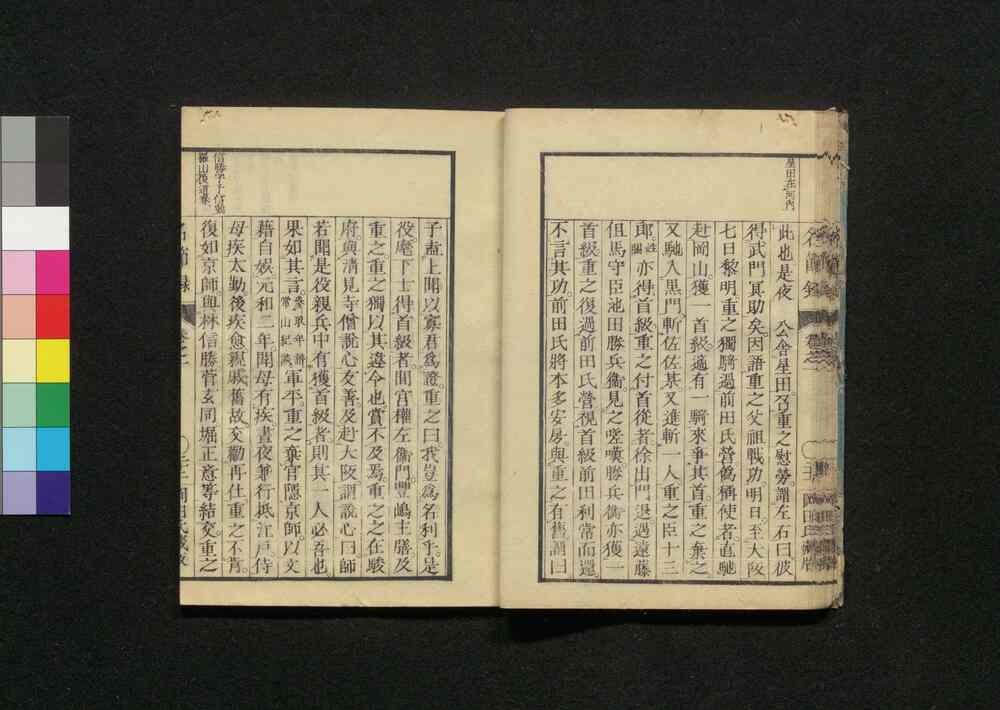 星田在河內
此也是夜　公舍星田召重之慰勞謂左右曰彼
得武門冥助矣因語重之父祖戰功明日至大阪
七日黎明重之獨騎過前田氏營僞稱使者直馳
赴岡山獲一首級適有一騎來爭其首重之棄之
又馳入黒門斬佐佐某又進斬一人重之臣十三
郎姓闕亦得首級重之付首從者徐出門退遇遠藤
但馬守臣池田勝兵衞見之嗟嘆勝兵衞亦獲一
首級重之復過前田氏營視首級前田利常而還
不言其功前田氏將本多安房與重之有舊謂曰
子盍上聞以寡君爲證重之曰我豈爲名利乎是
役麾下士得首級者間宮權左衞門豐嶋主膳及
重之重之獨以其違令也賞不及焉重之之在駿
府與淸見寺僧說心友善及赴大阪謂說心曰師
若聞是役親兵中有獲首級者則其一人必吾也
果如其言
常山紀談
軍平重之棄官隱京師以文
藉自娛元和二年聞母有疾晝夜兼行抵江戸侍
母疾太勤後疾愈親戚舊故交勸再仕重之不肯
復如京師與林信勝菅玄同堀正意等結交重之